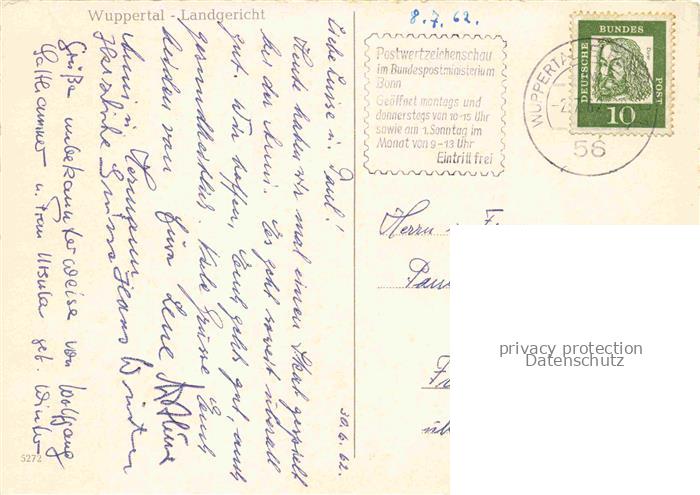 Wuppertal - Landgericht
8.7.62.
Postwertzeichenschau
im Bundespostministerium
Bonn
Geöffnet montags und
donnerstags von 10-15 Uhr
sowie am 1. Sonntag im
Monat von 9-13 Uhr
Eintritt frei
WUPPERTAL
56
DEUTSCHE
BUNDES
POST
Dürer
10
30.6.62.
Liebe Luise u. Paul!
Heute haben wir mal einen Skat gespielt
bei der Anni. Es geht soweit überall
gut. Wir hoffen, Euch geht's gut, auch
gesundheitlich. Viele Grüße Euch
beiden von Eure Lene
Anni u. Hermann
Herzliche Grüsse Hans Winter
Grüße unbekannterweise von Wolfgang
u. Frau Ursula geb. Winter
Herrn u. Fr
5272
privacy protection
Datenschutz